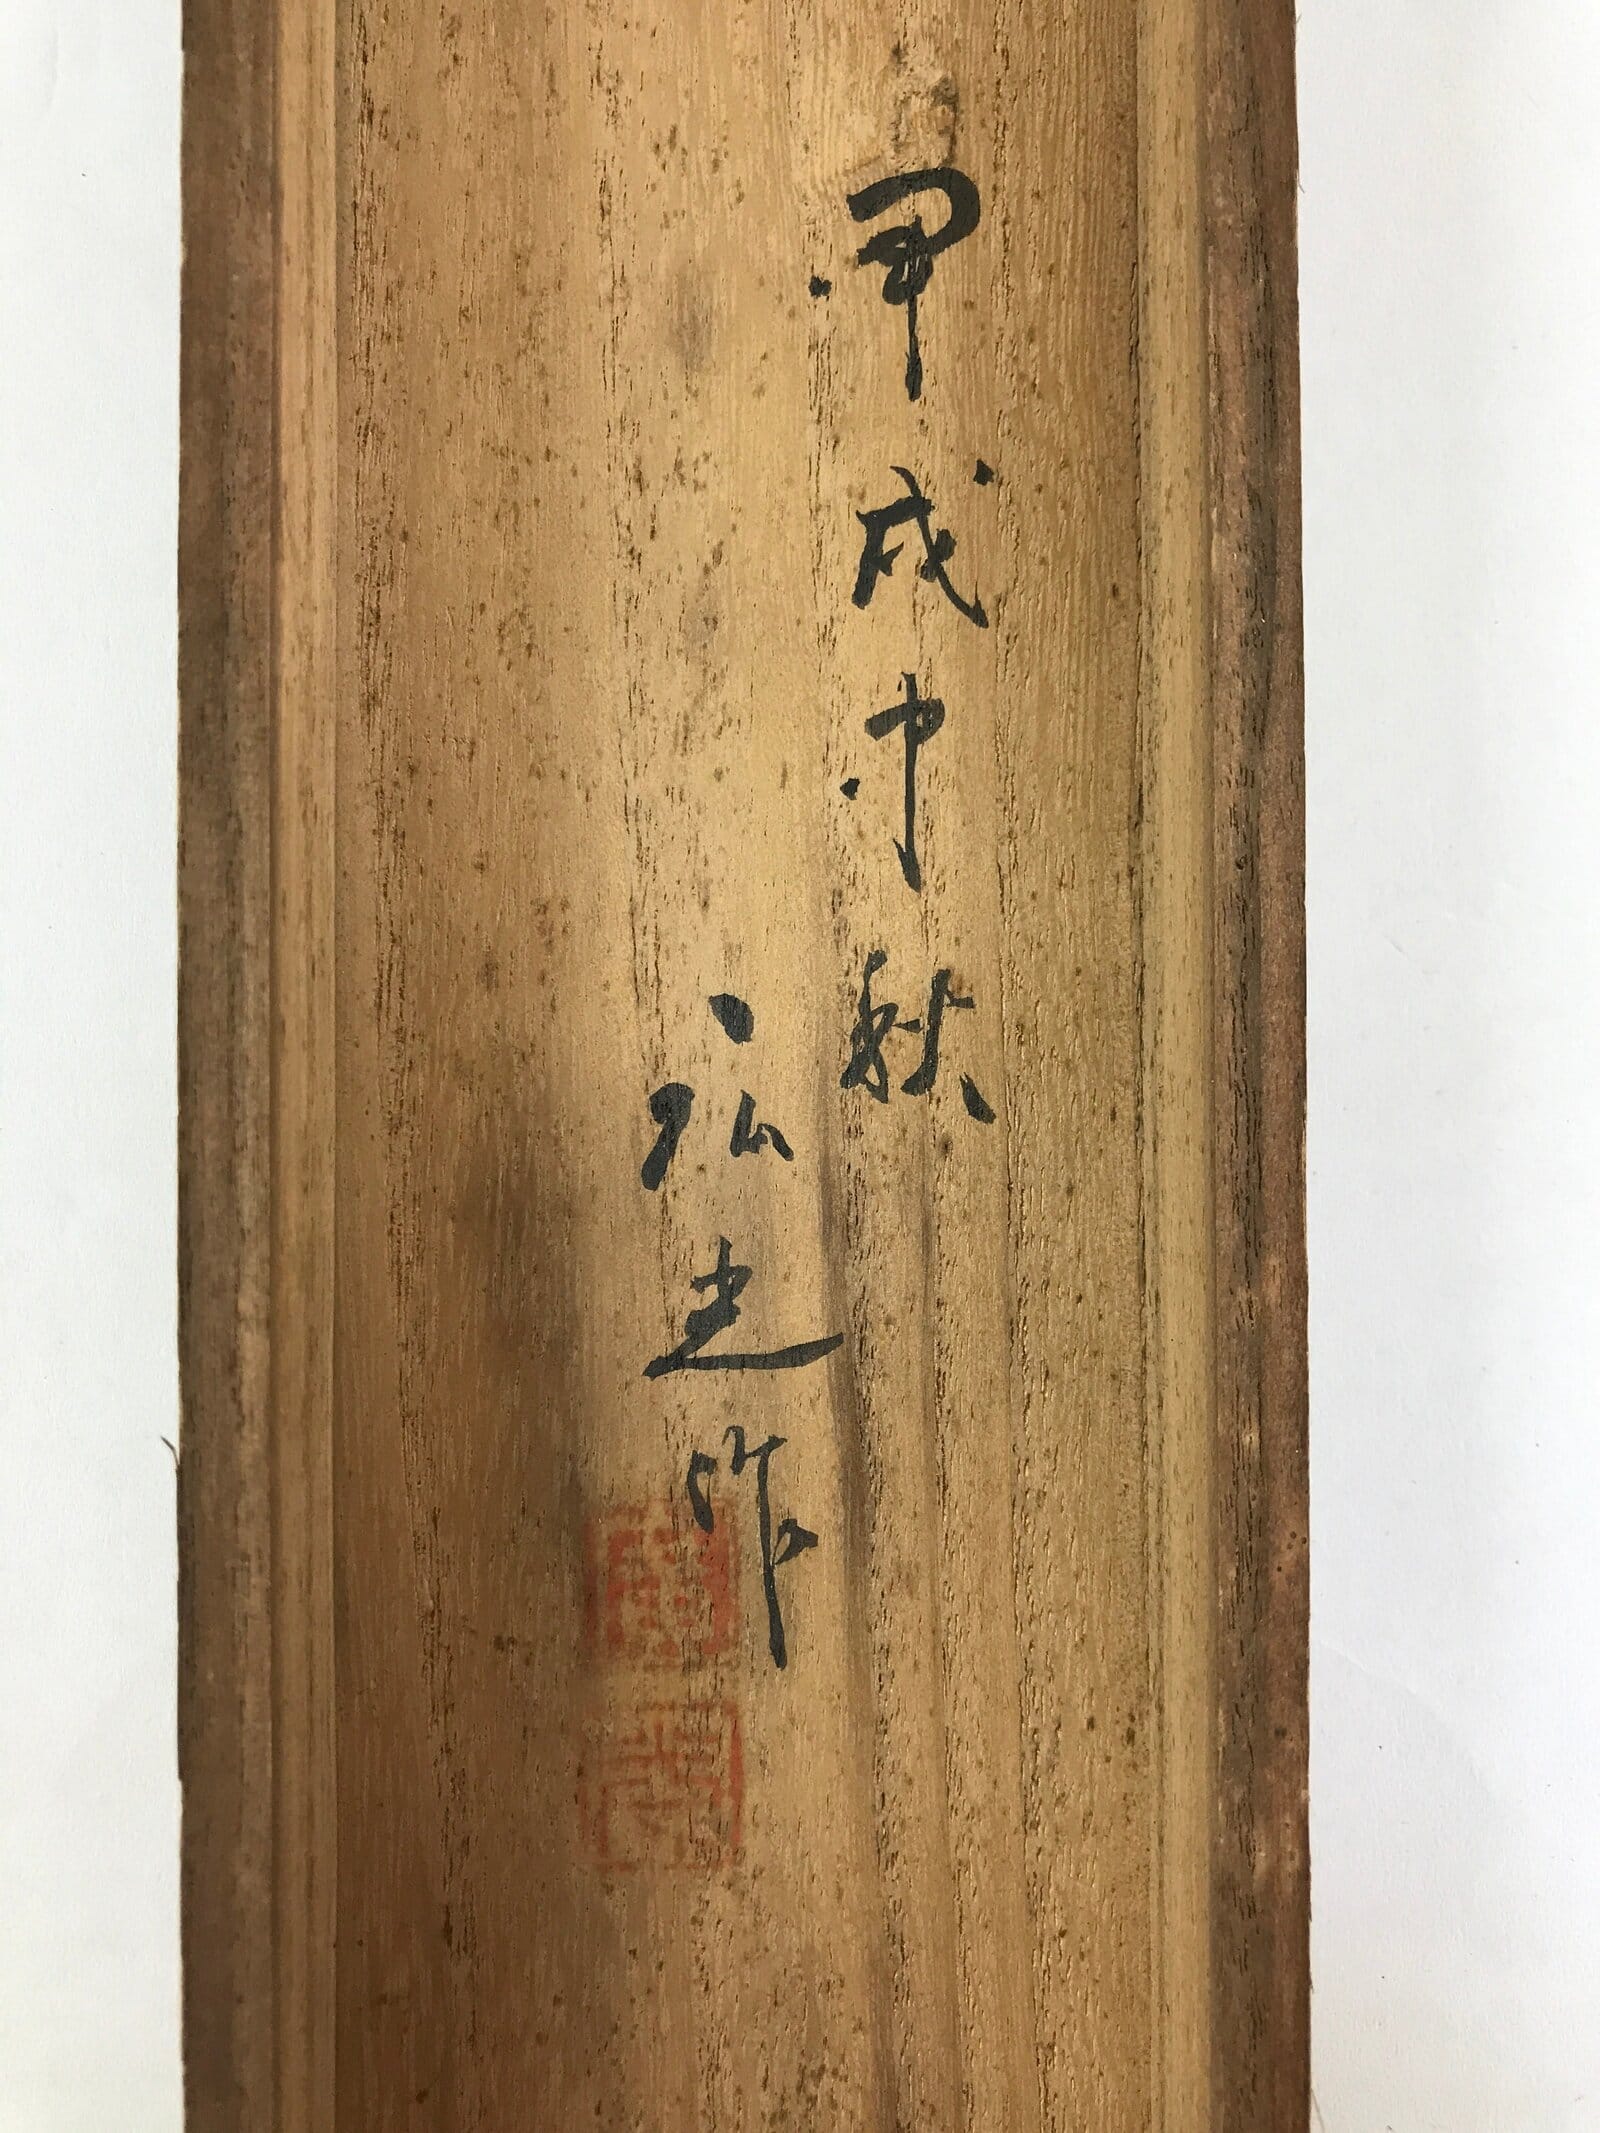 甲戌中秋
弘光作